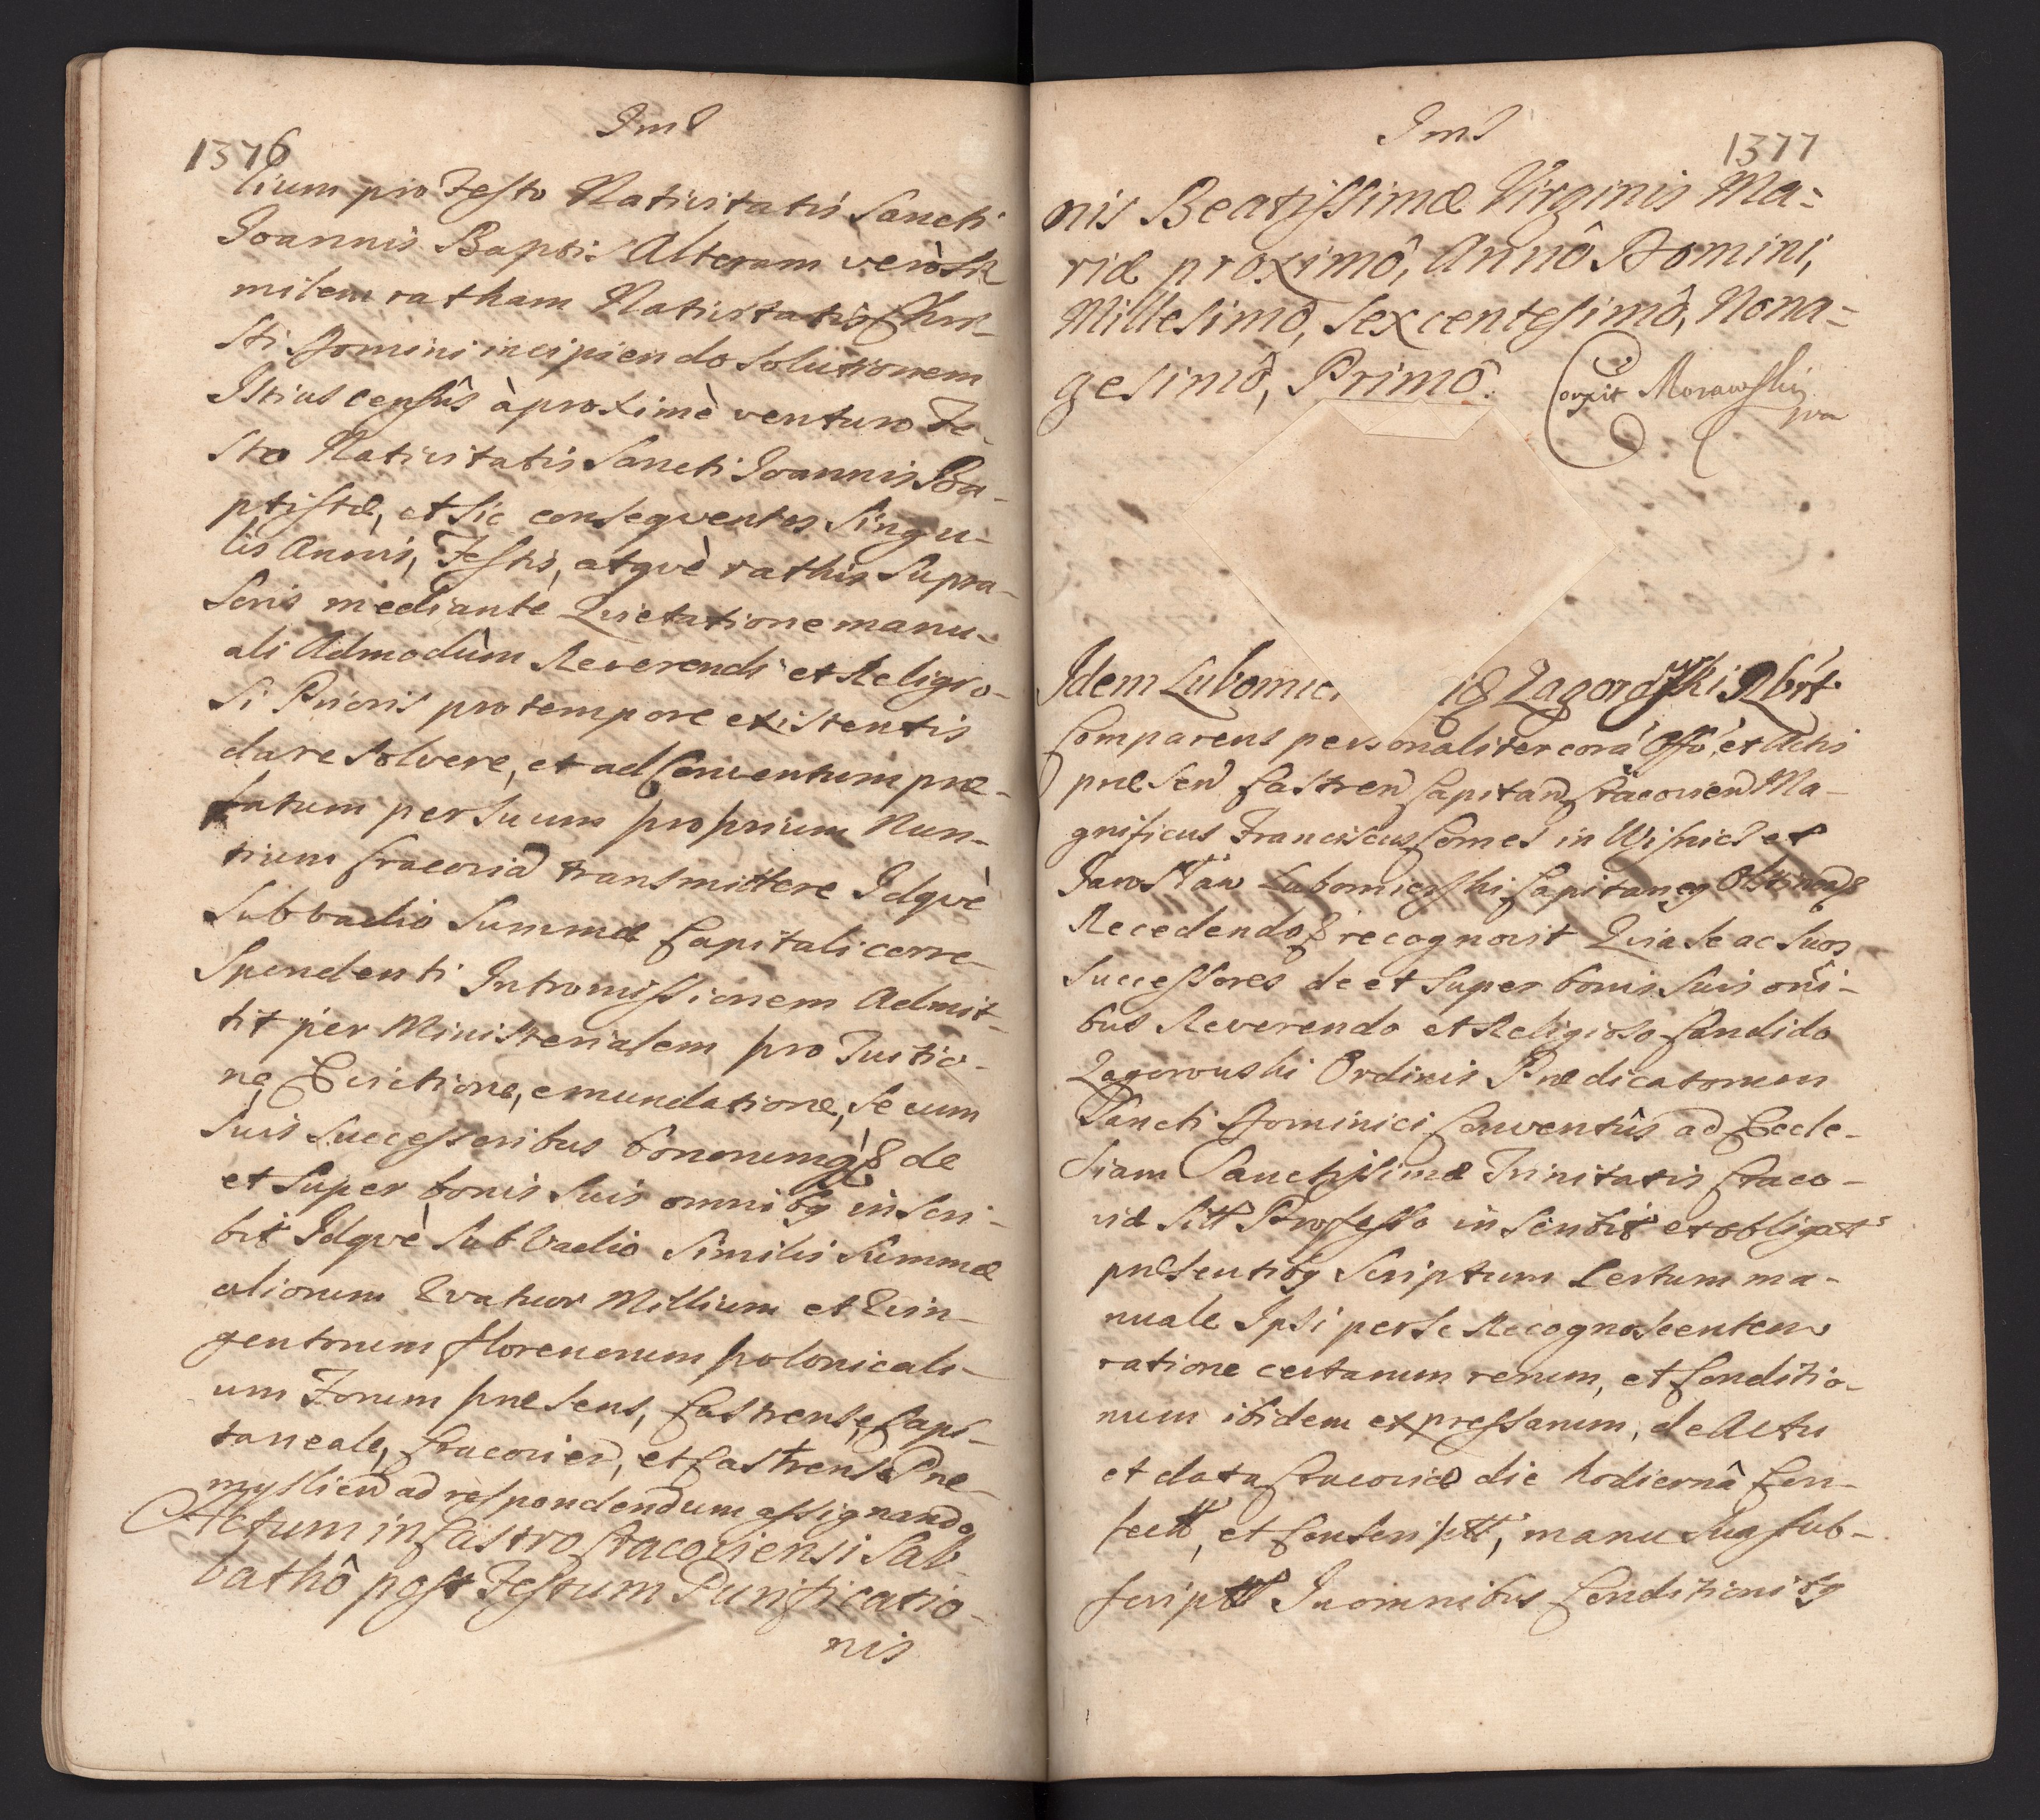 Ind
1376
tium pro Festo Nativitatis Sancti
Joannis Baptis Alteram verò Si
milem ratham Nativitatis Chri-
sti Domini incipiendo Solutionem
Istius censûs à proximè venturo Fe-
sto Nativitatis Sancti Joannis Ba-
ptistæ, et sic consequentes Singu-
lis Annis, Festis, atquè rathis Supra-
Scris mediante Quietatione manu-
ali Admodûm Reverendi et Religio-
si Prioris pro tempore existentis
dare solvere, et ad Conventum præ-
fatum per suum proprium Nun-
tium Cracoviã transmittere Idquè
Sub vadio Summæ Capitali corre-
Spondenti Intromissionem Admit-
tit per Ministerialem pro Tuitio-
ne, Evictione, emundatione, Se cum
Suis Successoribus bonorumqȝ de
et Super bonis Suis omnibȝ inscri-
bit Idquè Sub Vadio Simili Summæ
aliorum Quatuor Millium et Quin-
gentorum florenorum polonicali-
um Forum præsens, Castrense, Capi-
taneale, Cracovieñ, et Castrense Præ-
myslieñ ad respondendum assignando,
Actum in Castro Cracoviensi Sab-
bathô post Festum Purificatio-
nis
Ind
1377
nis Beatissimæ Virginis Ma-
riæ proximô, Annô Domini,
Millesimô, Sexcentesimô, Nona-
gesimô, Primô.
Corrxit Morawski
mp
Idem Lubomir Zagorowski Rbrt
Comparens personaliter corã Offo, et Actis
præseñ Castreñ Capitañ Cracovieñ Ma-
gnificus Franciscus Comes in Wisnicz et
Jarosław Lubomierski Capitaneȝ Olstineñ
Recedendo recognovit Quia Se ac Suos
Successores de et Super bonis Suis omi-
bus Reverendo et Religioso Candido
Zagorowski Ordinis Prædicatorum
Sancti Dominici Conventûs ad Eccle-
siam Sanctissimæ Trinitatis Craco-
viæ Sitt Professo inscribit et obligat
præsentibȝ Scriptum Certum ma-
nuale Ipsi per Se Recognoscentem
ratione certarum rerum, et Conditio-
num ibidem expressarum, de Actu
et data Cracoviæ die hodiernâ Con-
fectt, et Conscriptt, manu Sua sub-
scriptt In omnibus Conditionibȝ